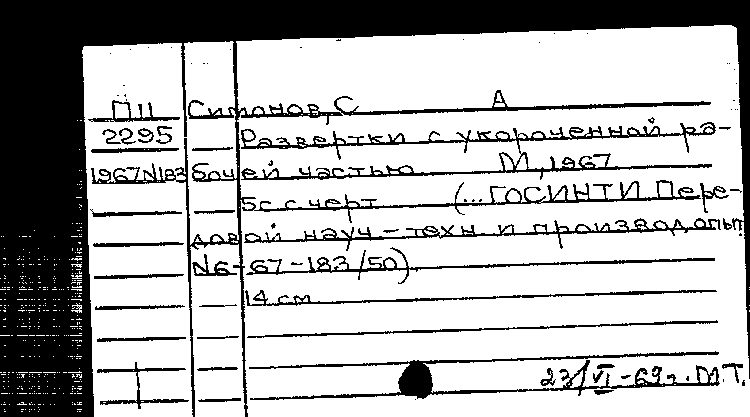 П11 Симонов, С А
2295 Развертки с укороченной ра-
1967N183 бочей частью М, 1967
5с с черт (...ГОСИНТИ Пере-
довой науч-техн и производ опыт
N6-67-183/50).
14 см
23/VI-69г. М.Т.